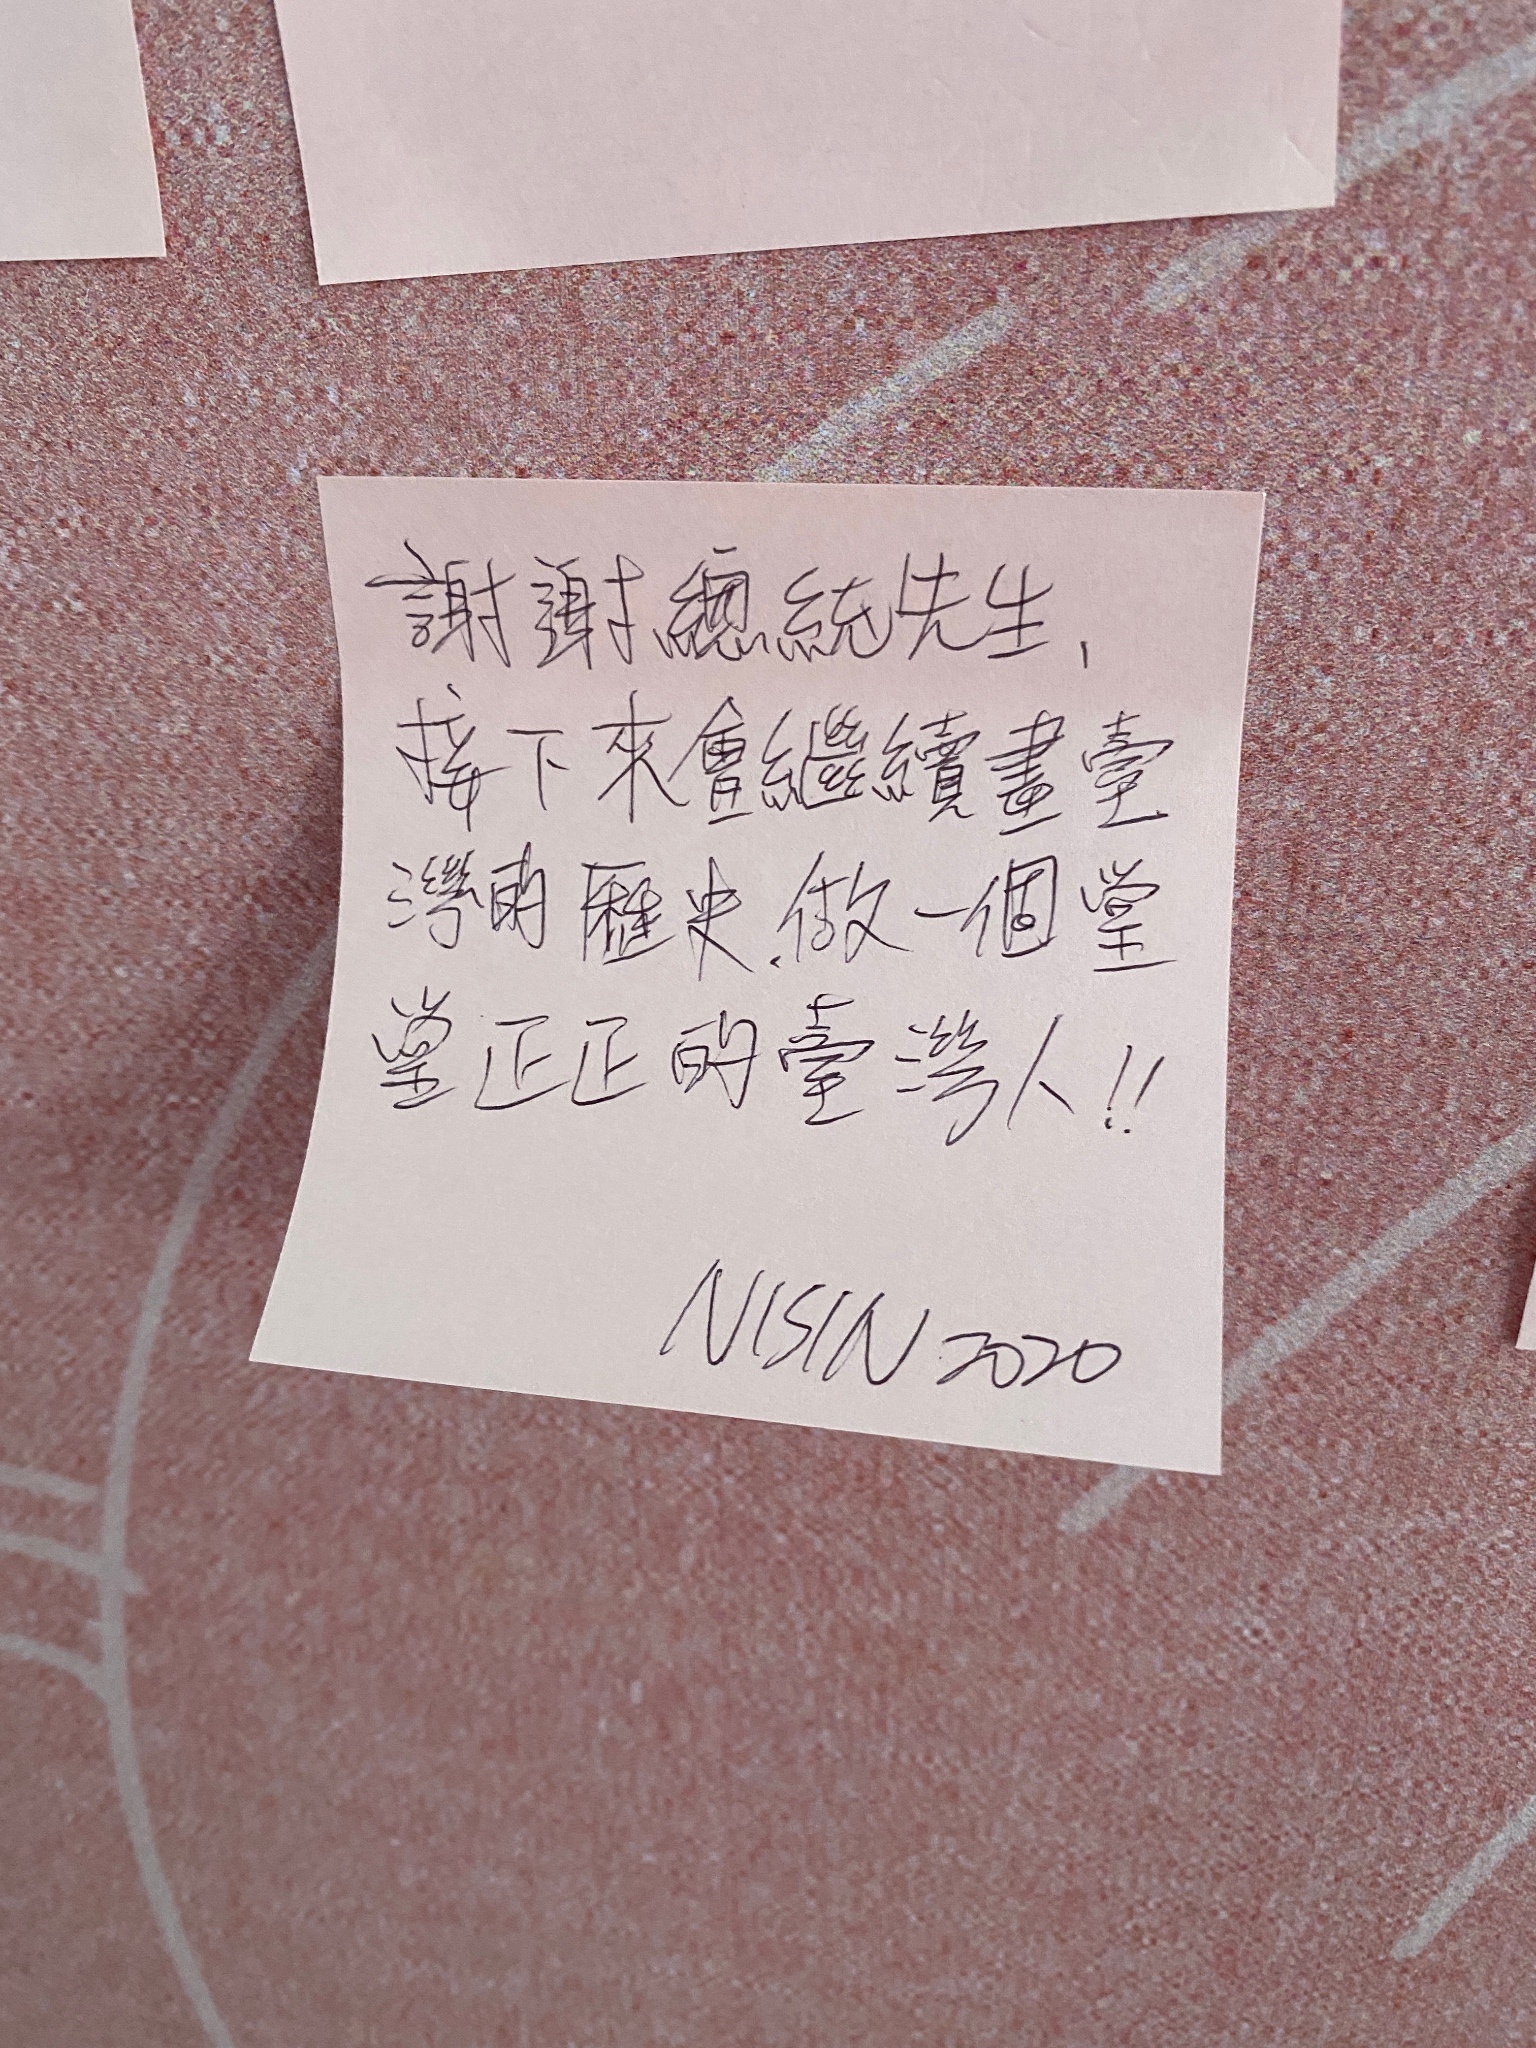 謝謝總統先生,
接下來會繼續畫臺
灣的歷史.做一個堂
堂正正的臺灣人!!
NISIN 2020